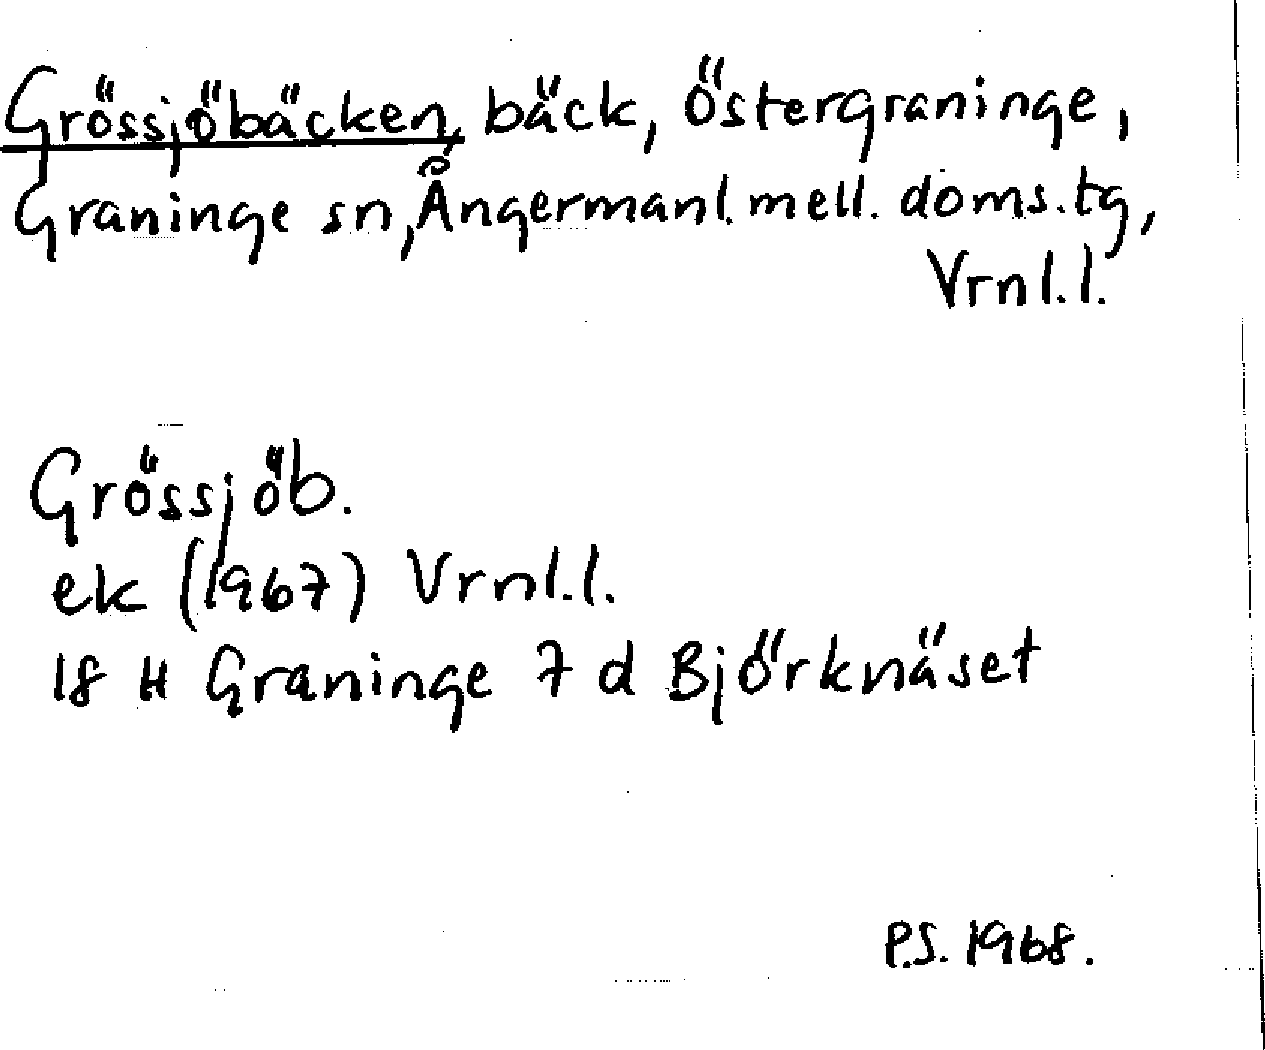 Grössjöbäcken, bäck, Östergraninge,
Graninge sn, Ångermanl. mell. doms. tg,
Vrnl. l.
Grössjöb.
ek (1967) Vrnl. l.
18 H Graninge 7 d Björknäset
P.S. 1968.